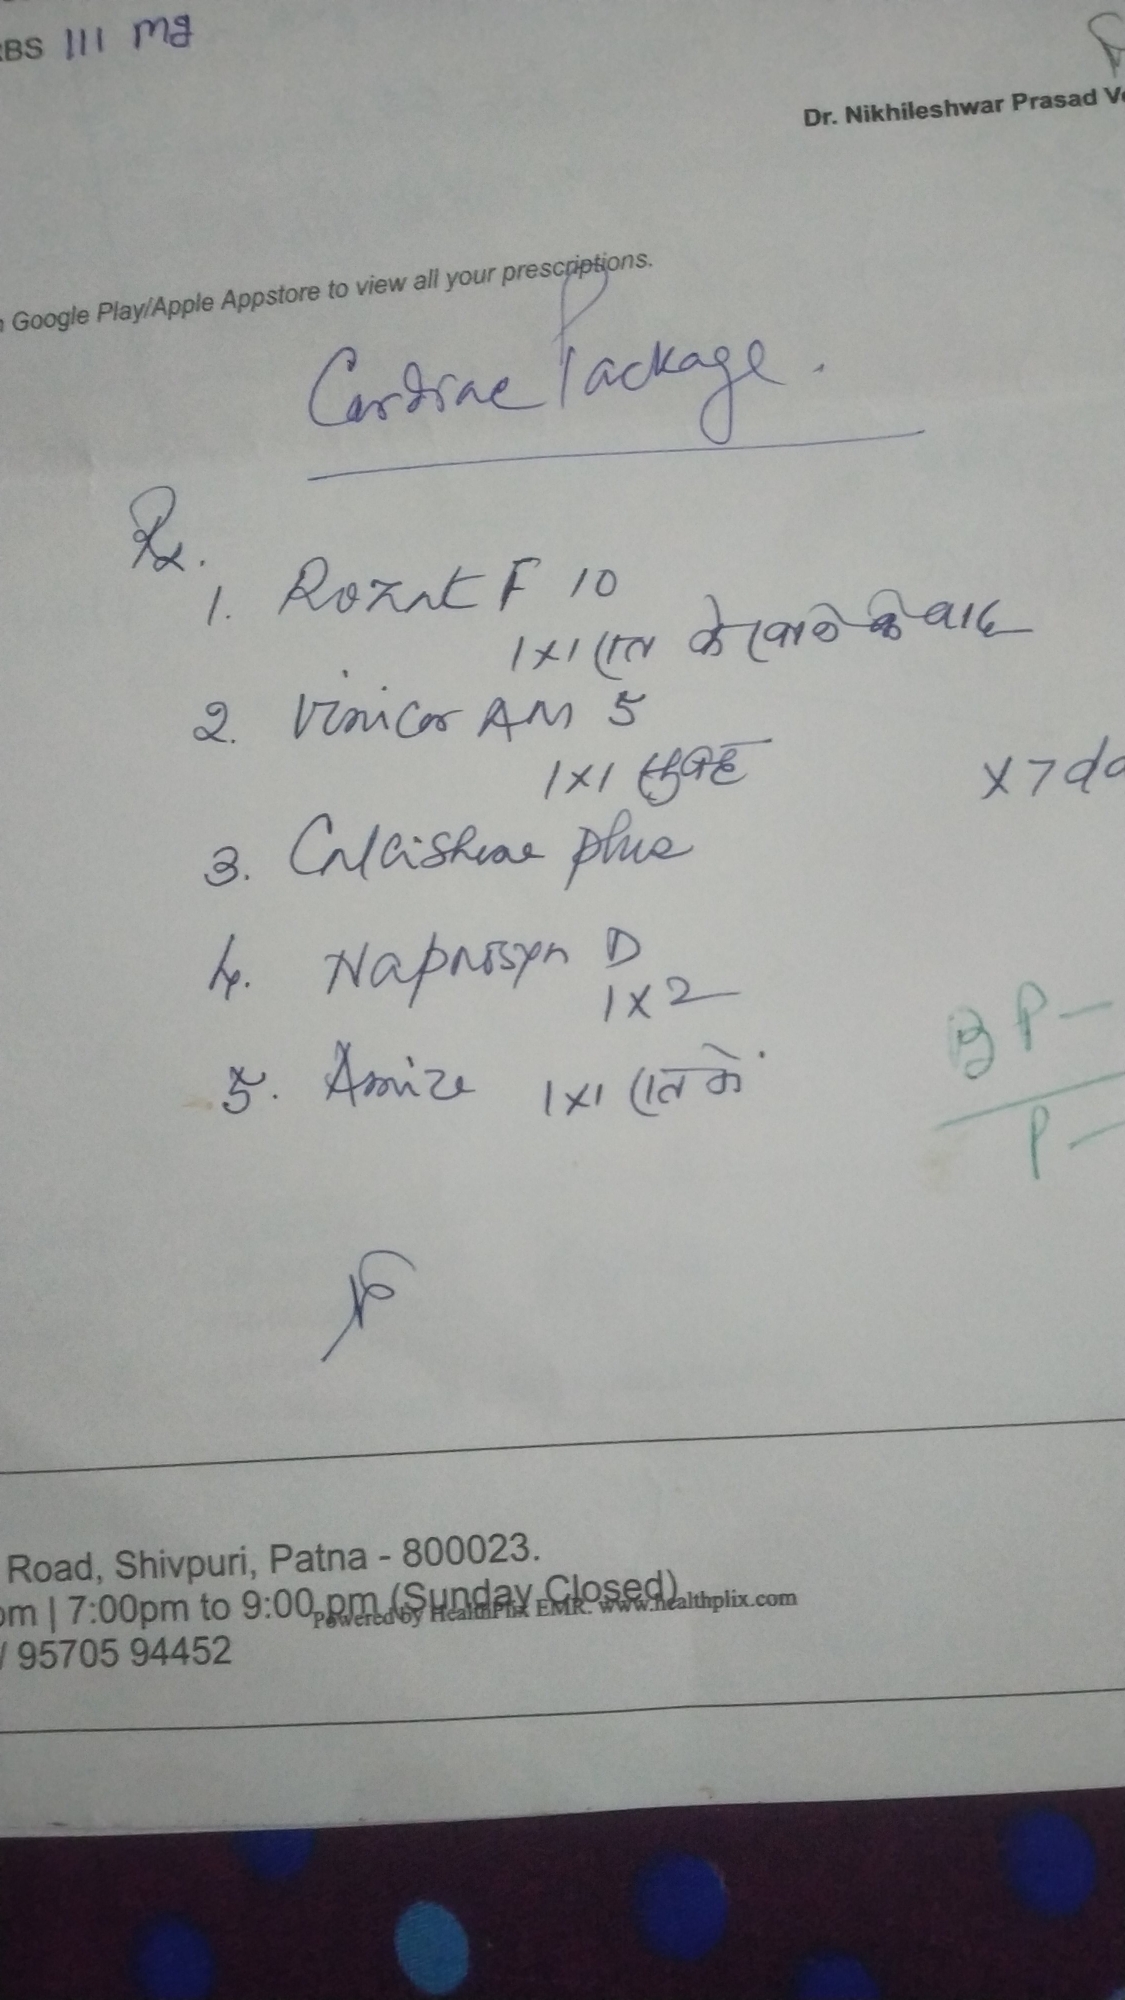 RBS 111 mg
Dr. Nikhileshwar Prasad Ve
n Google Play/Apple Appstore to view all your prescriptions.
Cardiac Package.
Rx.
1. Rozat F 10
1x1 रात के खाने के बाद
2. Vinicor AM 5
1x1 सुबह
x7 da
3. Calcishine plus
4. Naprosyn D
1x2
BP-
5. Amize 1x1 रात को
P-
Road, Shivpuri, Patna - 800023.
pm | 7:00pm to 9:00 pm (Sunday Closed)
Powered by HealthPlix EMR. www.healthplix.com
/ 95705 94452